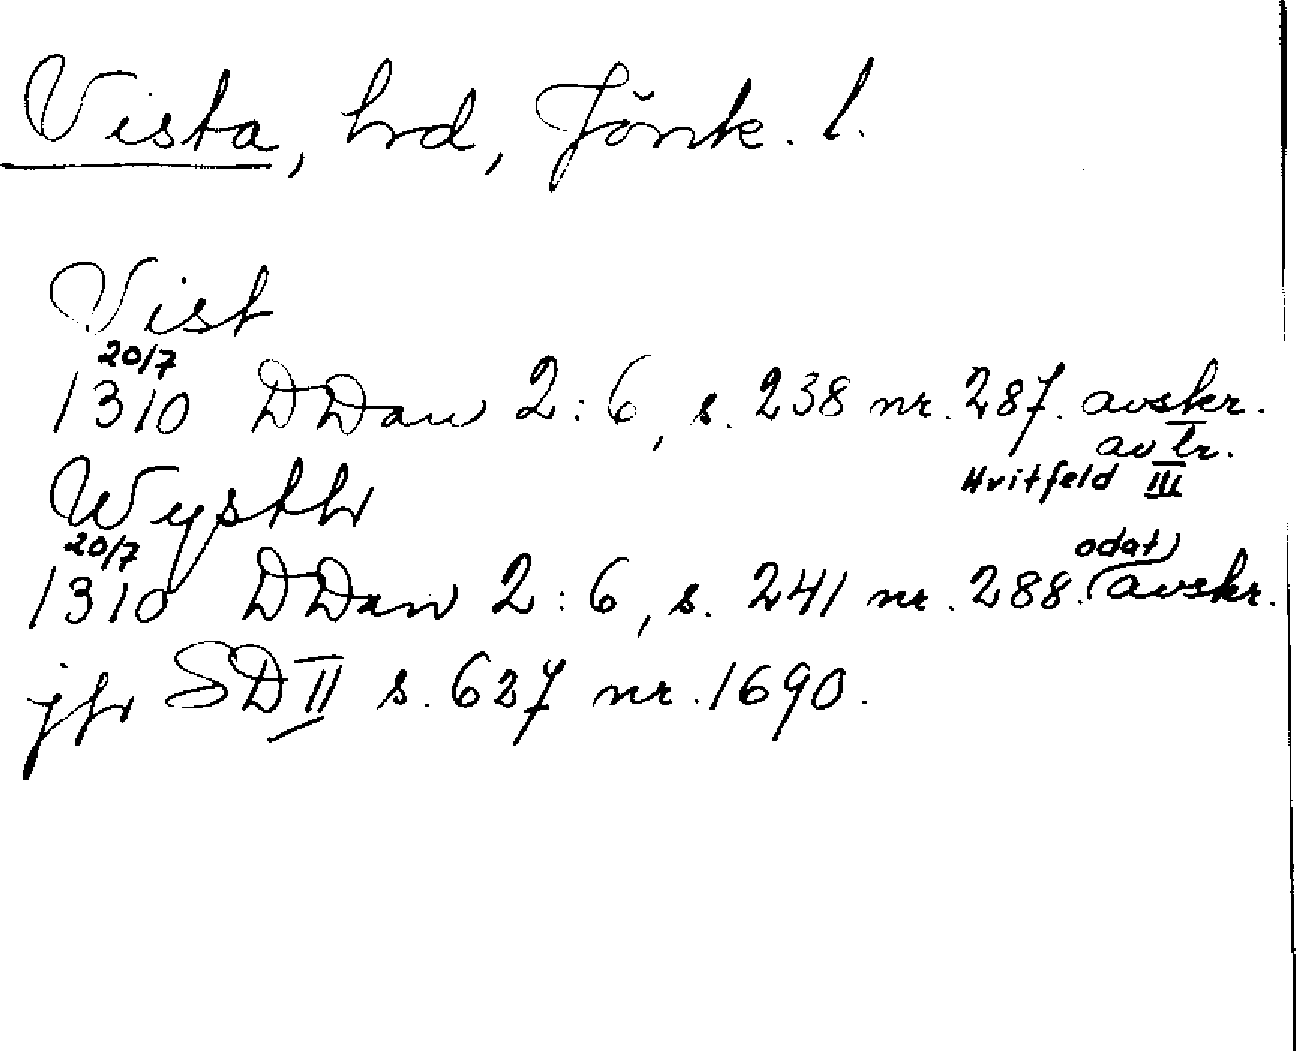 Vista, hrd, Jönk. l.
Vist
20/7
1310 DDan 2:6, s. 238 nr. 287. avskr.
av tr.
Hvitfeld III
Wysthr
20/7 odat
1310 DDan 2:6, s. 241 nr. 288. avskr.
jfr SD II s. 627 nr. 1690.